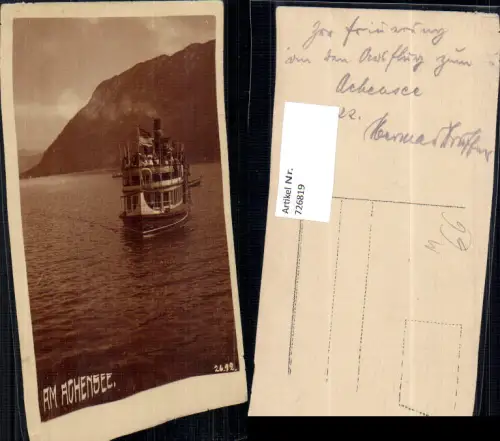 AM ACHENSEE.
Zur Erinnerung
an den Ausflug zum
Achensee
22.
Artikel Nr.
726819